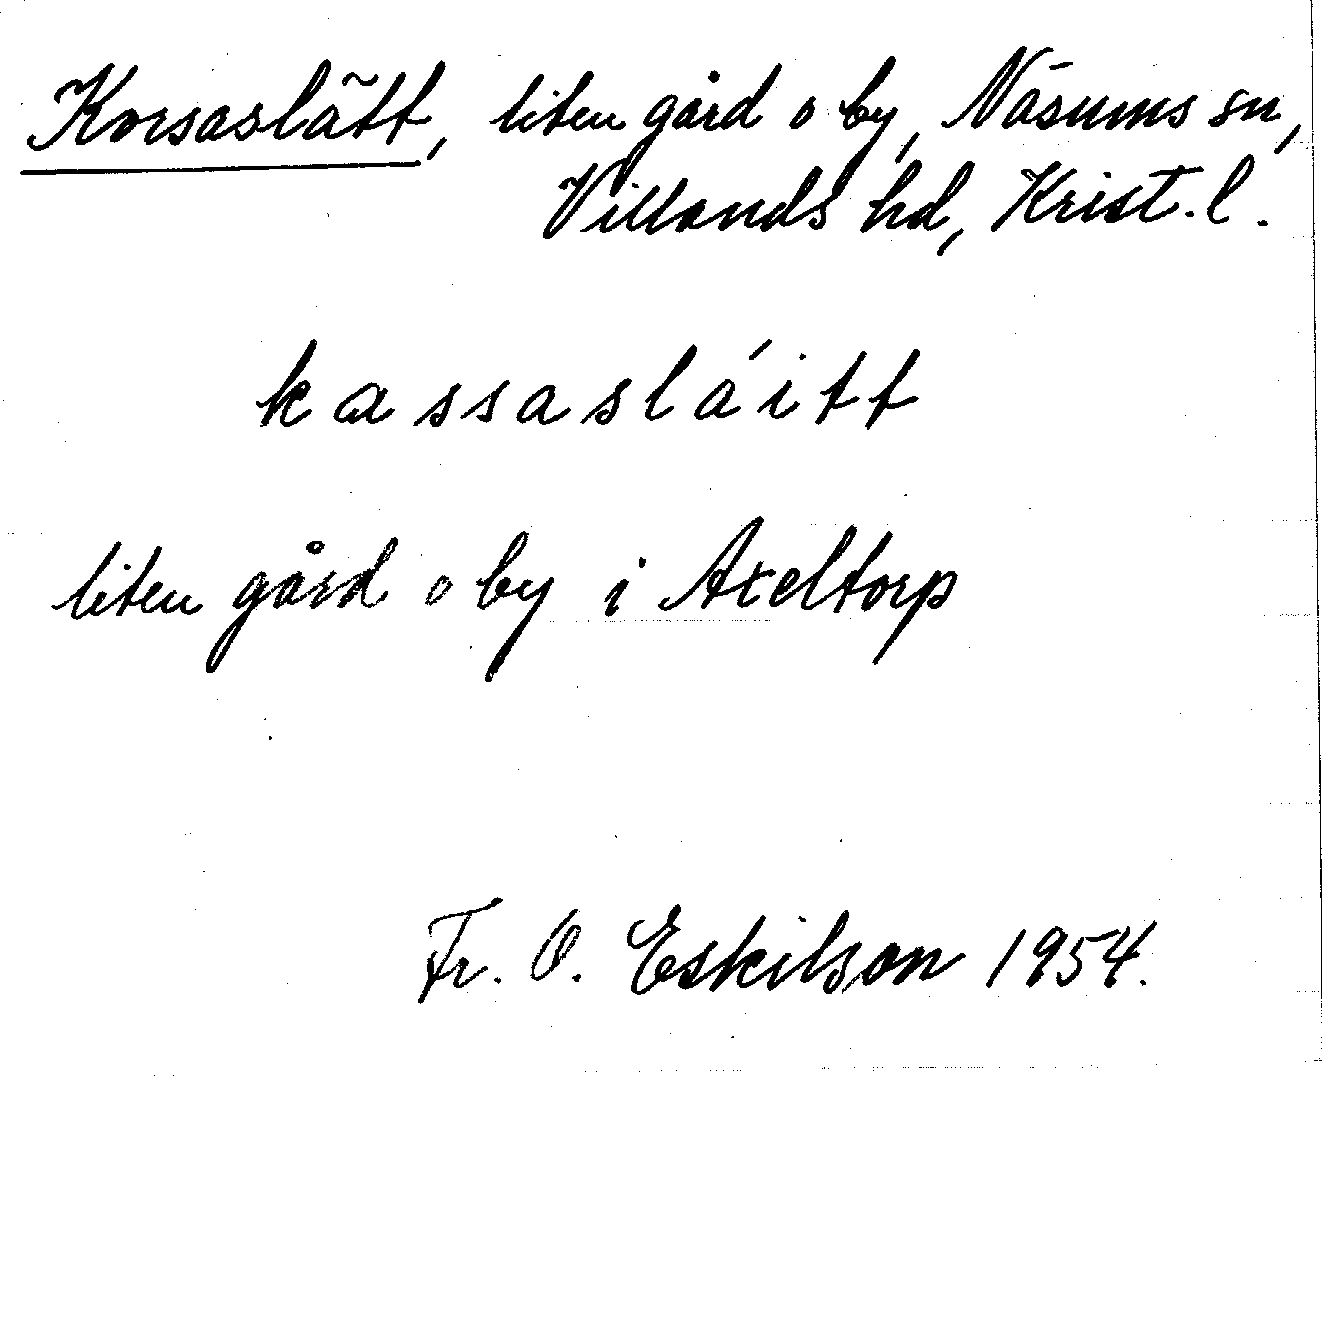 Korsaslätt, liten gård o by, Näsums sn,
Villands hd, Krist. l.
kassasláitt
liten gård o by i Axeltorp
Fr. O. Eskilson 1954.